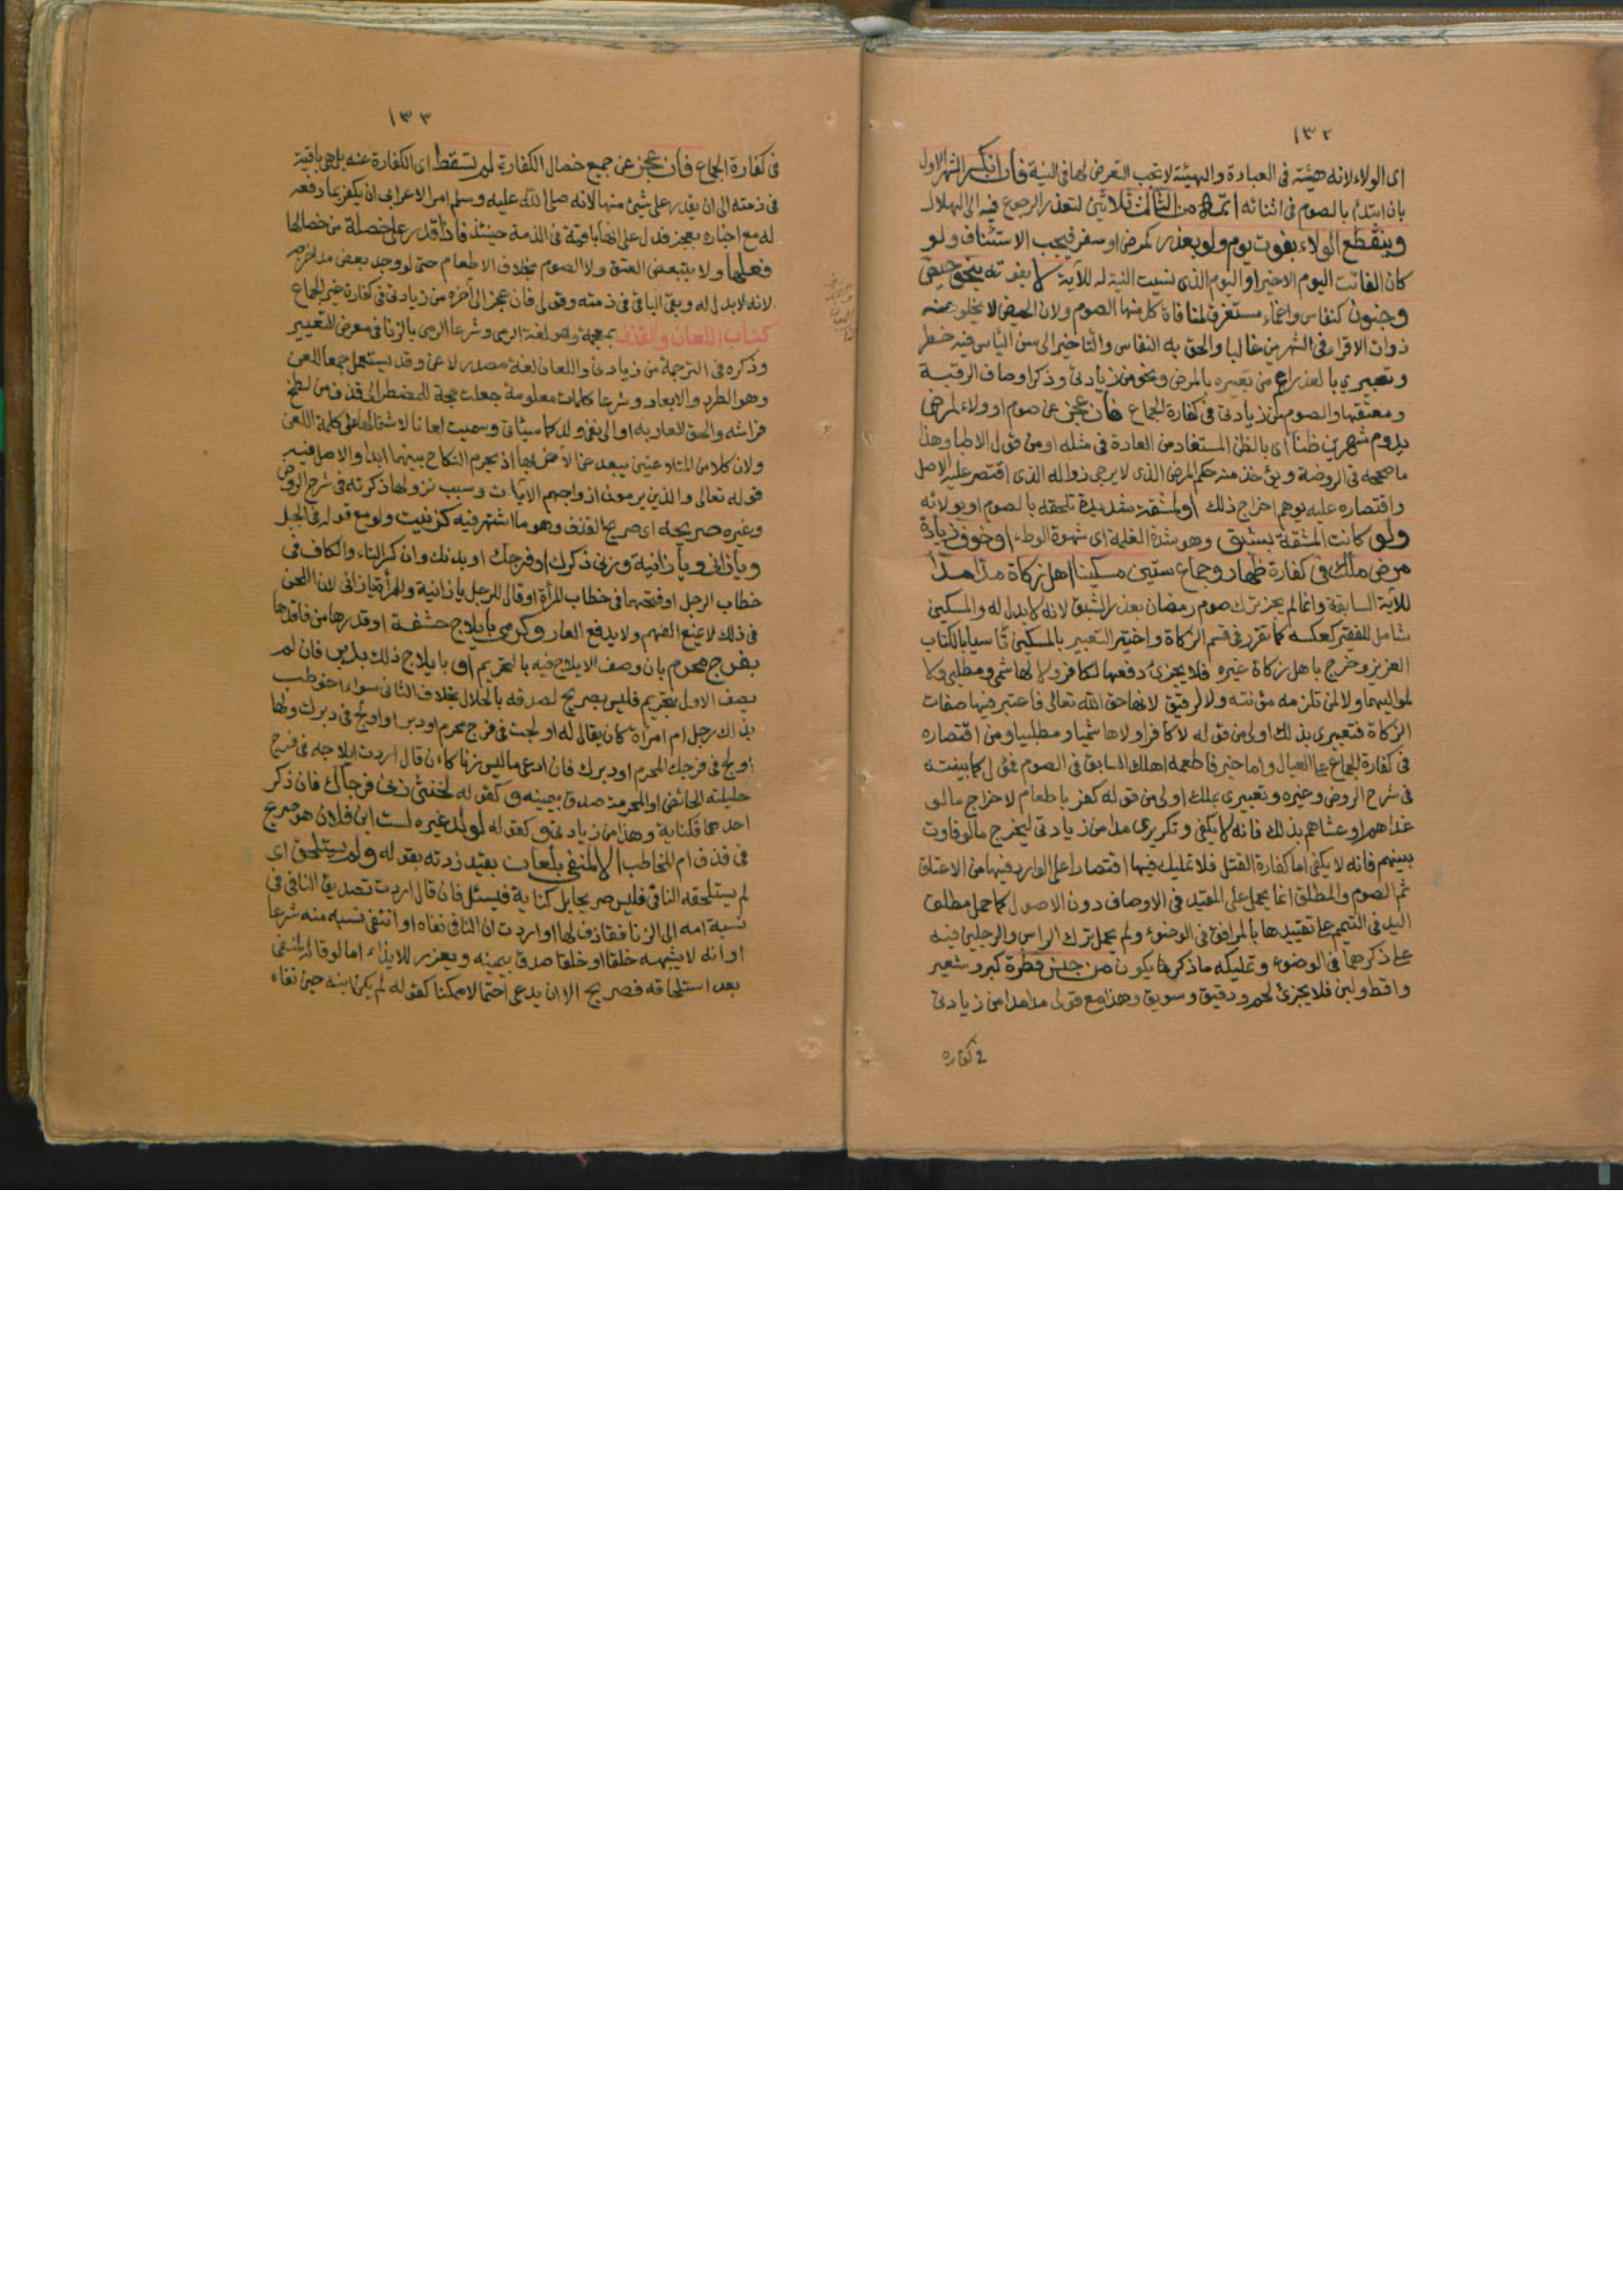 ١٣٢
اى الولاء لانه هيئة فى العبادة والهيئة لا يجب التعرض لها فى النية فان انكسر الشهر الاول
بان ابتدئ بالصوم فى اثنائه اتمه من الثالث ثلاثين لتعذر الرجوع فيه الى الهلال
وينقطع الولاء بفوت يوم ولو بعذر كمرض او سفر فيجب الاستئناف ولو
كان الفائت اليوم الاخير او اليوم الذى نسيت النية له للآية لا بفوته بنحو حيض
وجنون كنفاس واغماء مستغرق لمنافاة كل منها الصوم ولان الحيض لا يخلو عنه
ذوات الاقراء فى الشهرين غالبا والحق به النفاس والتاخير الى سن الياس فيه خطر
وتعبيرى بالعذر اعم من تعبيره بالمرض ونحو من زيادتى وذكر اوصاف الرقبة
ومعتقها والصوم من زيادتى فى كفارة الجماع فان عجز عن صوم او ولاء لمرض
يدوم شهرين ظنا اى بالظن المستفاد من العادة فى مثله او من قول الاطبا وهذا
ما صححه فى الروضة ويؤخذ منه حكم المرض الذى لا يرجى زواله الذى اقتصر عليه الاصل
واقتصاره عليه يوهم اخراج ذلك او لمشقة شديدة تلحقه بالصوم او بولائه
ولو كانت المشقة بشبق وهو شدة الغلمة اى شهوة الوطء او خوف زيادة
مرض ملك فى كفارة ظهار وجماع ستين مسكينا اهل زكاة مدا مدا
للآية السابقة وانما لم يجز ترك صوم رمضان بعذر الشبق لانه لا بدل له والمسكين
شامل للفقير كعكسه كما تقرر فى قسم الزكاة واختير التعبير بالمسكين تاسيا بالكتاب
العزيز وخرج باهل زكاة غيره فلا يجزئ دفعها لكافر ولا لهاشمى ومطلبى ولا
لمواليهما ولا لمن تلزمه مؤنته ولا لرقيق لانها حق الله تعالى فاعتبر فيها صفات
الزكاة فتعبيرى بذلك اولى من قوله لا كافرا ولا هاشميا ومطلبيا ومن اقتصاره
فى كفارة الجماع على العيال واما خبر فاطعمه اهلك السابق فى الصوم فمؤول كما بينته
فى شرح الروض وغيره وتعبيرى بملك اولى من قوله كفر باطعام لاخراج ما لو
غداهم او عشاهم بذلك فانه لا يكفى وتكريرى مدا من زيادتى ليخرج ما لو فاوت
بينهم فانه لا يكفى اما كفارة القتل فلا تمليك فيها اقتصارا على الوارد فيها من الاعتاق
ثم الصوم والمطلق انما يحمل على المقيد فى الاوصاف دون الاصول كما حمل مطلق
اليد فى التيمم على تقييدها بالمرافق فى الوضوء ولم يحمل ترك الراس والرجلين فيه
على ذكرهما فى الوضوء وتمليكه ما ذكر بما يكون من جنس فطرة كبر وشعير
واقط ولبن فلا يجزئ لحم ودقيق وسويق وهذا مع قولى مدا مدا من زيادتى
فى كفارة
١٣٣
فى كفارة الجماع فان عجز عن جميع خصال الكفارة لم تسقط اى الكفارة عنه بل هى باقية
فى ذمته الى ان يقدر على شئ منها لانه صلى الله عليه وسلم امر الاعرابى ان يكفر بما دفعه
له مع اخباره بعجزه فدل على انها باقية فى الذمة حينئذ فاذا قدر على خصلة من خصالها
فعلها ولا يتبعض العتق ولا الصوم بخلاف الاطعام حتى لو وجد بعض مد اخرجه
لانه لا بدل له وبقى الباقى فى ذمته وقولى فان عجز الى آخره من زيادتى فى كفارة غير الجماع
كتاب اللعان والقذف بمعجمة وهو لغة الرمى وشرعا الرمى بالزنا فى معرض التعيير
وذكره فى الترجمة من زيادتى واللعان لغة مصدر لاعن وقد يستعمل جمعا للعن
وهو الطرد والابعاد وشرعا كلمات معلومة جعلت حجة للمضطر الى قذف من لطخ
فراشه والحق العار به او الى نفى ولد كما سياتى وسميت لعانا لاشتمالها على كلمة اللعن
ولان كلا من المتلاعنين يبعد عن الآخر بها اذ يحرم النكاح بينهما ابدا والاصل فيه
قوله تعالى والذين يرمون ازواجهم الآيات وسبب نزولها ذكرته فى شرح الروض
وغيره صريحه اى صريح القذف وهو ما اشتهر فيه كزنيت ولو مع قوله فى الجبل
ويا زانى ويا زانية وزنى ذكرك او فرجك او بدنك وان كسر التاء والكاف فى
خطاب الرجل او فتحهما فى خطاب المرأة او قال للرجل يا زانية وللمرأة يا زانى لان اللحن
فى ذلك لا يمنع الفهم ولا يدفع العار وكرمى بايلاج حشفة او قدرها من فاقدها
بفرج محرم بان وصف الايلاج فيه بالتحريم او بايلاج ذلك بدبر فان لم
يصف الاول بتحريم فليس بصريح لصدقه بالحلال بخلاف الثانى سواء اخوطب
بذلك رجل ام امرأة كان يقال له اولجت فى فرج محرم او دبر او اولج فى دبرك ولها
اولج فى فرجك المحرم او دبرك فان ادعى ما ليس زنا كان قال اردت ايلاجه فى فرج
حليلته الحائض او المحرمة صدق بيمينه وكقوله لخنثى زنى فرجاك فان ذكر
احدهما فكناية وهذا من زيادتى وكقوله لولد غيره لست ابن فلان هو صريح
فى قذف ام المخاطب الا لمنفى بلعان بقيد زدته بقوله ولم يستلحق اى
لم يستلحقه النافى فليس صريحا بل كناية فيسئل فان قال اردت تصديق النافى فى
نسبة امه الى الزنا فقاذف لها او اردت ان النافى نفاه او انتفى نسبه منه شرعا
او انه لا يشبهه خلقا او خلقا صدق بيمينه ويعزر للايذاء اما لو قاله لمنفى
بعد استلحاقه فصريح الا ان يدعى احتمالا ممكنا كقوله لم يكن ابنه حين نفاه